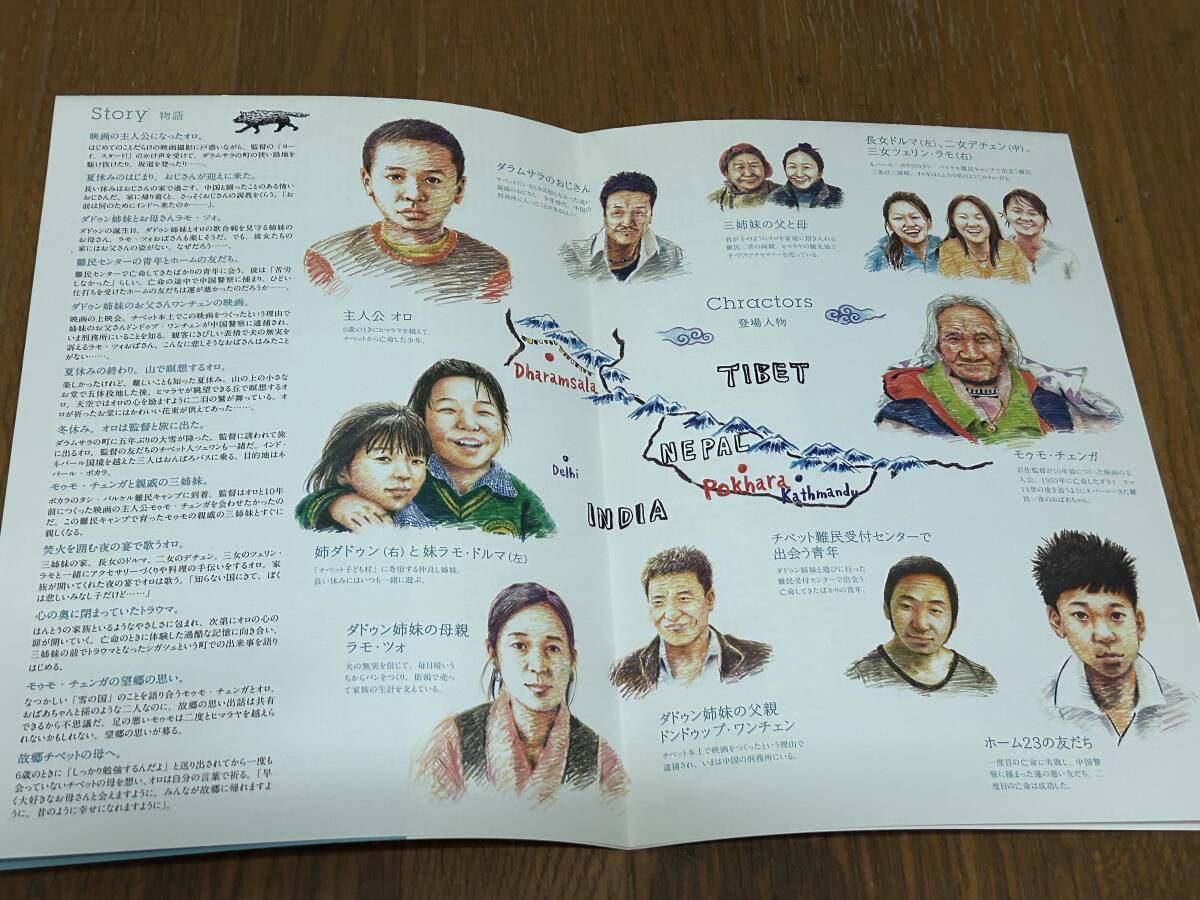 Story 物語
映画の主人公になったオロ。
はじめてのことだらけの映画撮影に戸惑いながら、監督の「ヨー
イ、スタート!」のかけ声を受けて、ダラムサラの町の狭い路地を
駆け抜けたり、坂道を登ったり……。
夏休みのはじまり。おじさんが迎えに来た。
長い休みはおじさんの家で過ごす。中国と闘ったことのある怖い
おじさんだ。家に帰り着くと、さっそくおじさんの説教をくらう。「お
前は何のためにインドへ来たのか……」。
ダドゥン姉妹とお母さんラモ・ツォ。
ダドゥンの誕生日。ダドゥン姉妹とオロの歌合戦を見守る姉妹の
お母さん、ラモ・ツォおばさんも楽しそうだ。でも、彼女たちの
家にはお父さんの姿がない。なぜだろう……。
難民センターの青年とホームの友だち。
難民センターで亡命してきたばかりの青年に会う。彼は「苦労
しなかった」らしい。亡命の途中で中国警察に捕まり、ひどい
仕打ちを受けたホームの友だちは運が悪かったのだろうか……。
ダドゥン姉妹のお父さんワンチェンの映画。
映画の上映会。チベット本土でこの映画をつくったという理由で
姉妹のお父さんドンドゥプ・ワンチェンが中国警察に逮捕され、
いま刑務所にいることを知る。観客にきびしい表情で夫の無実を
訴えるラモ・ツォおばさん。こんなに悲しそうなおばさんはみたこと
がない……。
夏休みの終わり。山で瞑想するオロ。
楽しかったけれど、難しいことも知った夏休み。山の上の小さな
お堂で五体投地した後、ヒマラヤが眺望できる丘で瞑想するオ
ロ。天空ではオロの心を励ますように二羽の鷲が舞っている。オ
ロが祈ったお堂にはかわいい花束が供えてあった……。
冬休み。オロは監督と旅に出た。
ダラムサラの町に五年ぶりの大雪が降った。監督に誘われて旅
に出るオロ。監督の友だちのチベット人ツェワンも一緒だ。インド・
ネパール国境を越えた三人はおんぼろバスに乗る。目的地はネ
パール・ポカラ。
モゥモ・チェンガと親戚の三姉妹。
ポカラのタシ・パルケル難民キャンプに到着。監督はオロと10年
前につくった映画の主人公モゥモ・チェンガを会わせたかったの
だ。この難民キャンプで育ったモゥモの親戚の三姉妹とすぐに
親しくなる。
焚火を囲む夜の宴で歌うオロ。
三姉妹の家。長女のドルマ、二女のデチェン、三女のツェリン・
ラモと一緒にアクセサリーづくりや料理の手伝いをするオロ。家
族が開いてくれた夜の宴でオロは歌う。「知らない国にきて、ぼく
は悲しいみなし子だけど……」
心の奥に閉まっていたトラウマ。
ほんとうの家族といるようなやさしさに包まれ、次第にオロの心の
扉が開いていく。亡命のときに体験した過酷な記憶に向き合い、
三姉妹の前でトラウマとなったシガツェという町での出来事を語り
はじめる。
モゥモ・チェンガの望郷の思い。
なつかしい「雪の国」のことを語り合うモゥモ・チェンガとオロ。
おばあちゃんと孫のような二人なのに、故郷の思い出話は共有
できるから不思議だ。足の悪いモゥモは二度とヒマラヤを越えら
れないかもしれない。望郷の思いが募る。
故郷チベットの母へ。
6歳のときに「しっかり勉強するんだよ」と送り出されてから一度も
会っていないチベットの母を想い、オロは自分の言葉で祈る。「早
く大好きなお母さんと会えますように。みんなが故郷に帰れますよ
うに。昔のように幸せになれますように」。
主人公 オロ
6歳のときにヒマラヤを越えて、
チベットから亡命した少年。
ダラムサラのおじさん
三姉妹の父と母
我が子のようにオロを家庭に招き入れる
難民二世の両親。ヒマラヤの観光地で
手づくりアクセサリーを売っている。
長女ドルマ(左)、二女デチェン(中)、
三女ツェリン・ラモ(右)
Chractors
登場人物
Dharamsala
TIBET
NEPAL
Delhi
Pokhara
Kathmandu
INDIA
モゥモ・チェンガ
岩佐監督が10年前につくった映画の主
人公。1959年に亡命したダライ・ラマ
14世の後を追うようにネパールへきた難
民一世のおばあちゃん。
姉ダドゥン(右)と妹ラモ・ドルマ(左)
「チベット子ども村」に寄宿する仲良し姉妹。
長い休みにはいつも一緒に遊ぶ。
チベット難民受付センターで
出会う青年
ダドゥン姉妹と遊びに行った
難民受付センターで出会う、
亡命してきたばかりの青年。
ダドゥン姉妹の母親
ラモ・ツォ
夫の無実を信じて、毎日暗いう
ちからパンをつくり、街頭で売っ
て家族の生計を支えている。
ダドゥン姉妹の父親
ドンドゥップ・ワンチェン
チベット本土で映画をつくったという理由で
逮捕され、いまは中国の刑務所にいる。
ホーム23の友だち
一度目の亡命に失敗し、中国警
察に捕まった運の悪い友だち。二
度目の亡命は成功した。